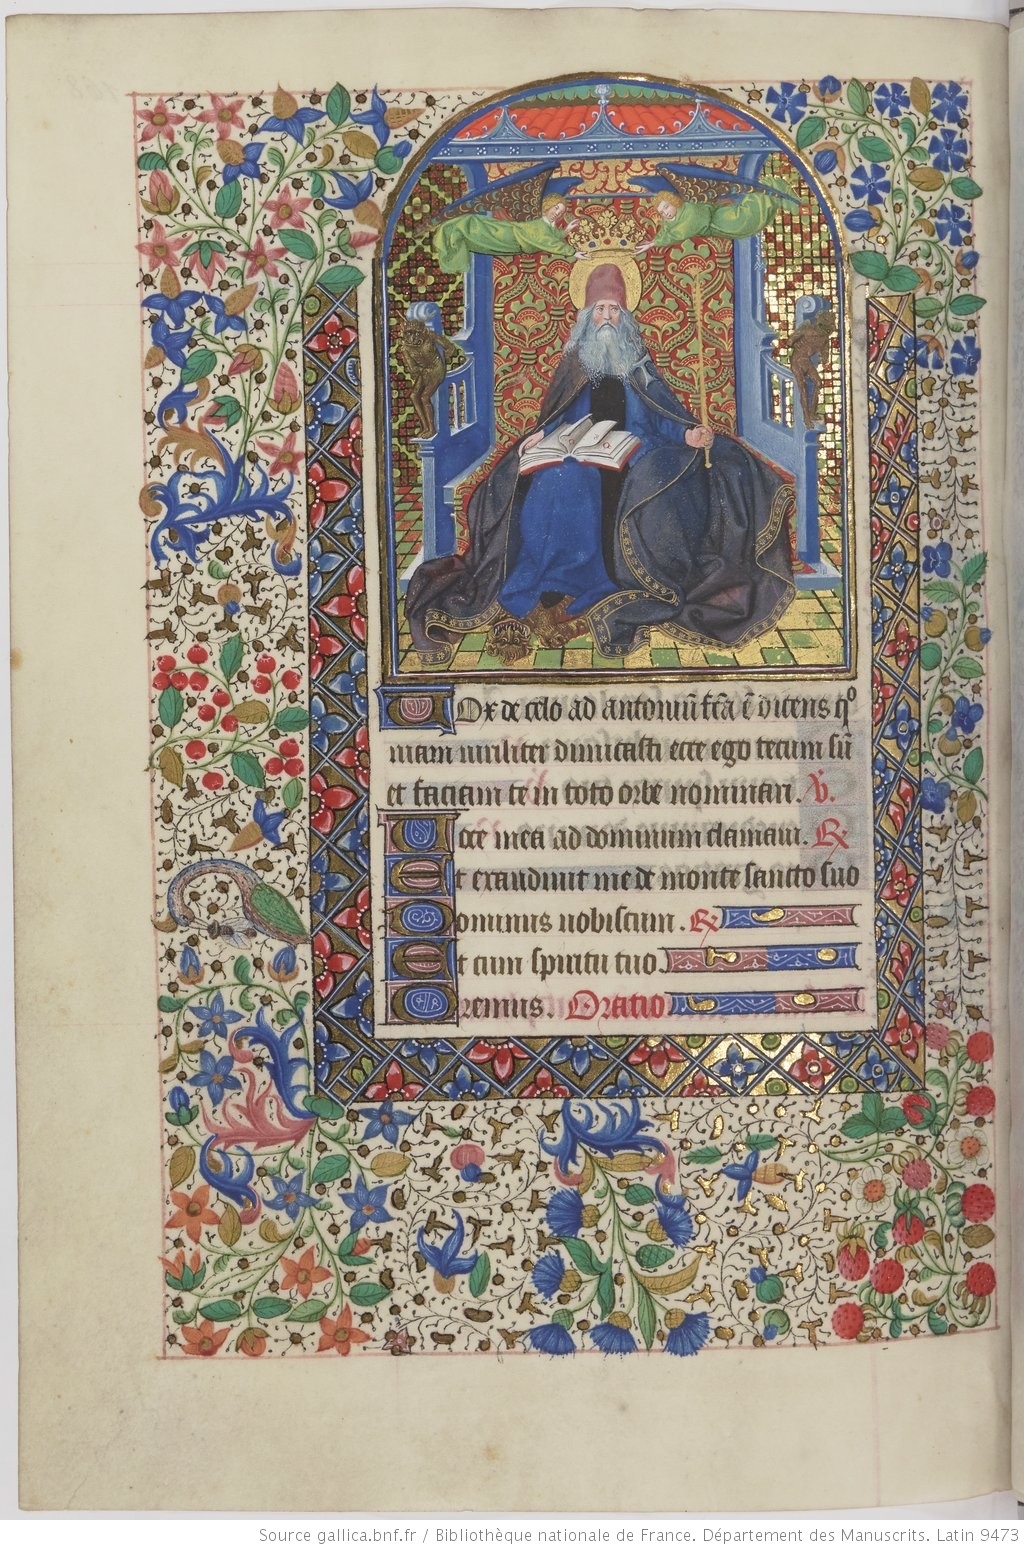 Vox de celo ad antoniũ fc̃a ẽ dicens qᵒ
niam uiriliter dimicasti ecce ego tecum sũ
et faciam te in toto orbe nominari. V̷.
Voce mea ad dominum clamaui. R̷
Et exaudiuit me de monte sancto suo
Dominus uobiscum. R̷
Et cum spiritu tuo.
Oremus. Oratio
Source gallica.bnf.fr / Bibliothèque nationale de France. Département des Manuscrits. Latin 9473